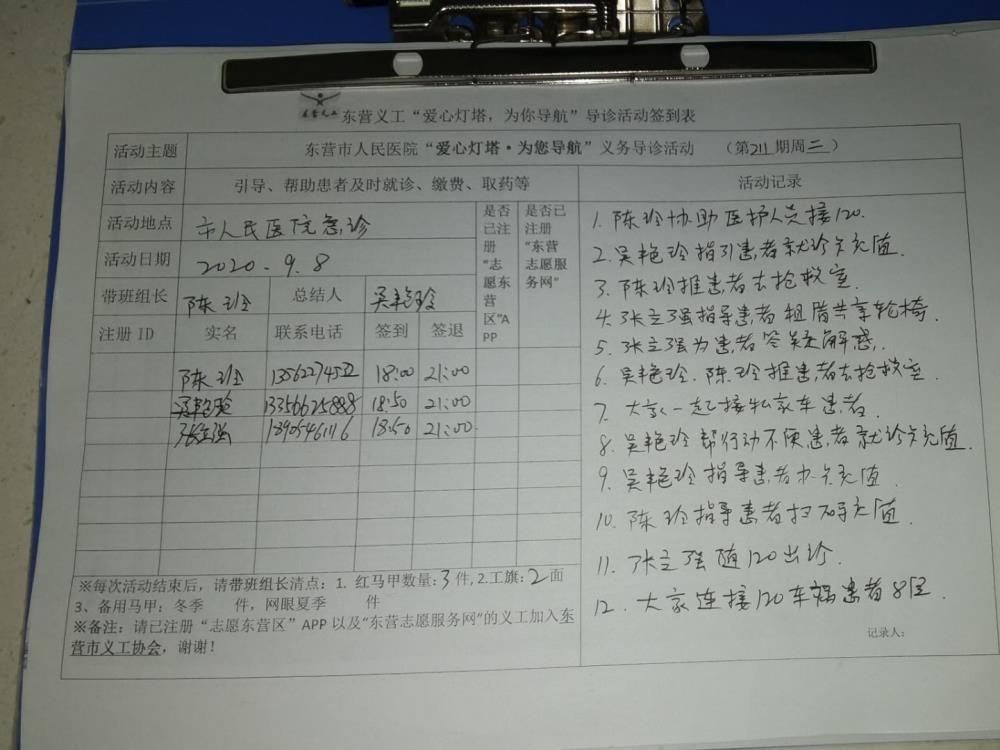 东营义工
东营义工“爱心灯塔，为你导航”导诊活动签到表
活动主题 东营市人民医院“爱心灯塔·为您导航”义务导诊活动 （第211期周三）
活动内容 引导、帮助患者及时就诊、缴费、取药等
活动地点 市人民医院急诊
活动日期 2020.9.8
带班组长 陈玲 总结人 吴艳玲
是否已注册“志愿东营区”APP
是否已注册“东营志愿服务网”
注册 ID 实名 联系电话 签到 签退
陈玲 18:00 21:00
吴艳玲 13356625888 18:50 21:00
张立强 18905461116 18:50 21:00
※每次活动结束后，请带班组长清点：1. 红马甲数量:3件,2.工旗:2面
3、备用马甲：冬季 件，网眼夏季 件
※备注：请已注册“志愿东营区”APP 以及“东营志愿服务网”的义工加入东
营市义工协会，谢谢！
活动记录
1. 陈玲协助医护人员接120.
2. 吴艳玲指引患者就诊卡充值.
3. 陈玲推患者去抢救室.
4. 张立强指导患者租借共享轮椅.
5. 张立强为患者答疑解惑.
6. 吴艳玲.陈玲推患者去抢救室.
7. 大家一起接私家车患者.
8. 吴艳玲帮行动不便患者就诊卡充值.
9. 吴艳玲指导患者办卡充值.
10. 陈玲指导患者扫码充值.
11. 张立强随120出诊.
12. 大家连接120车辆患者8位.
记录人：